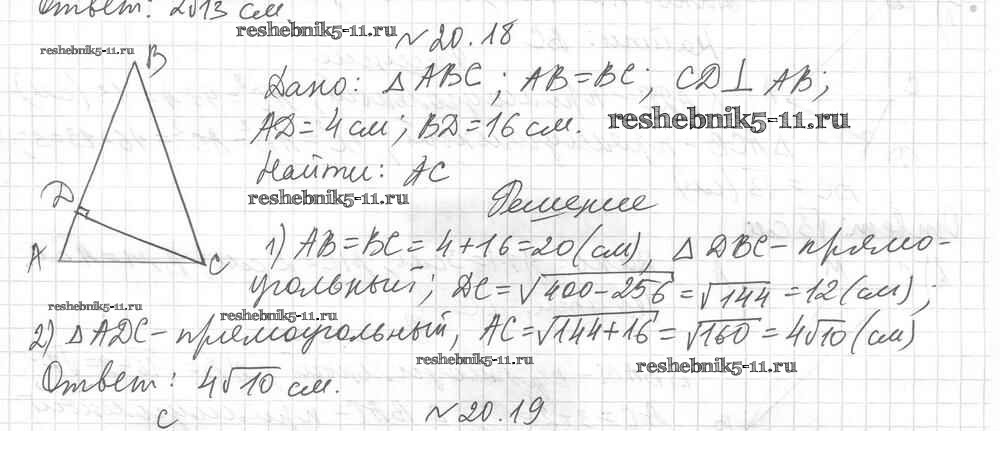 Ответ: 2√13 см
reshebnik5-11.ru
№20.18
reshebnik5-11.ru
B
Дано: △ABC; AB=BC; CD⊥AB;
AD=4см; BD=16см.
reshebnik5-11.ru
Найти: AC
reshebnik5-11.ru
D
Решение
A
C
1) AB=BC=4+16=20(см), △DBC-прямо-
угольный; DC=√400-256=√144=12(см);
reshebnik5-11.ru
reshebnik5-11.ru
2) △ADC-прямоугольный, AC=√144+16=√160=4√10(см)
reshebnik5-11.ru
reshebnik5-11.ru
Ответ: 4√10 см.
C
№20.19